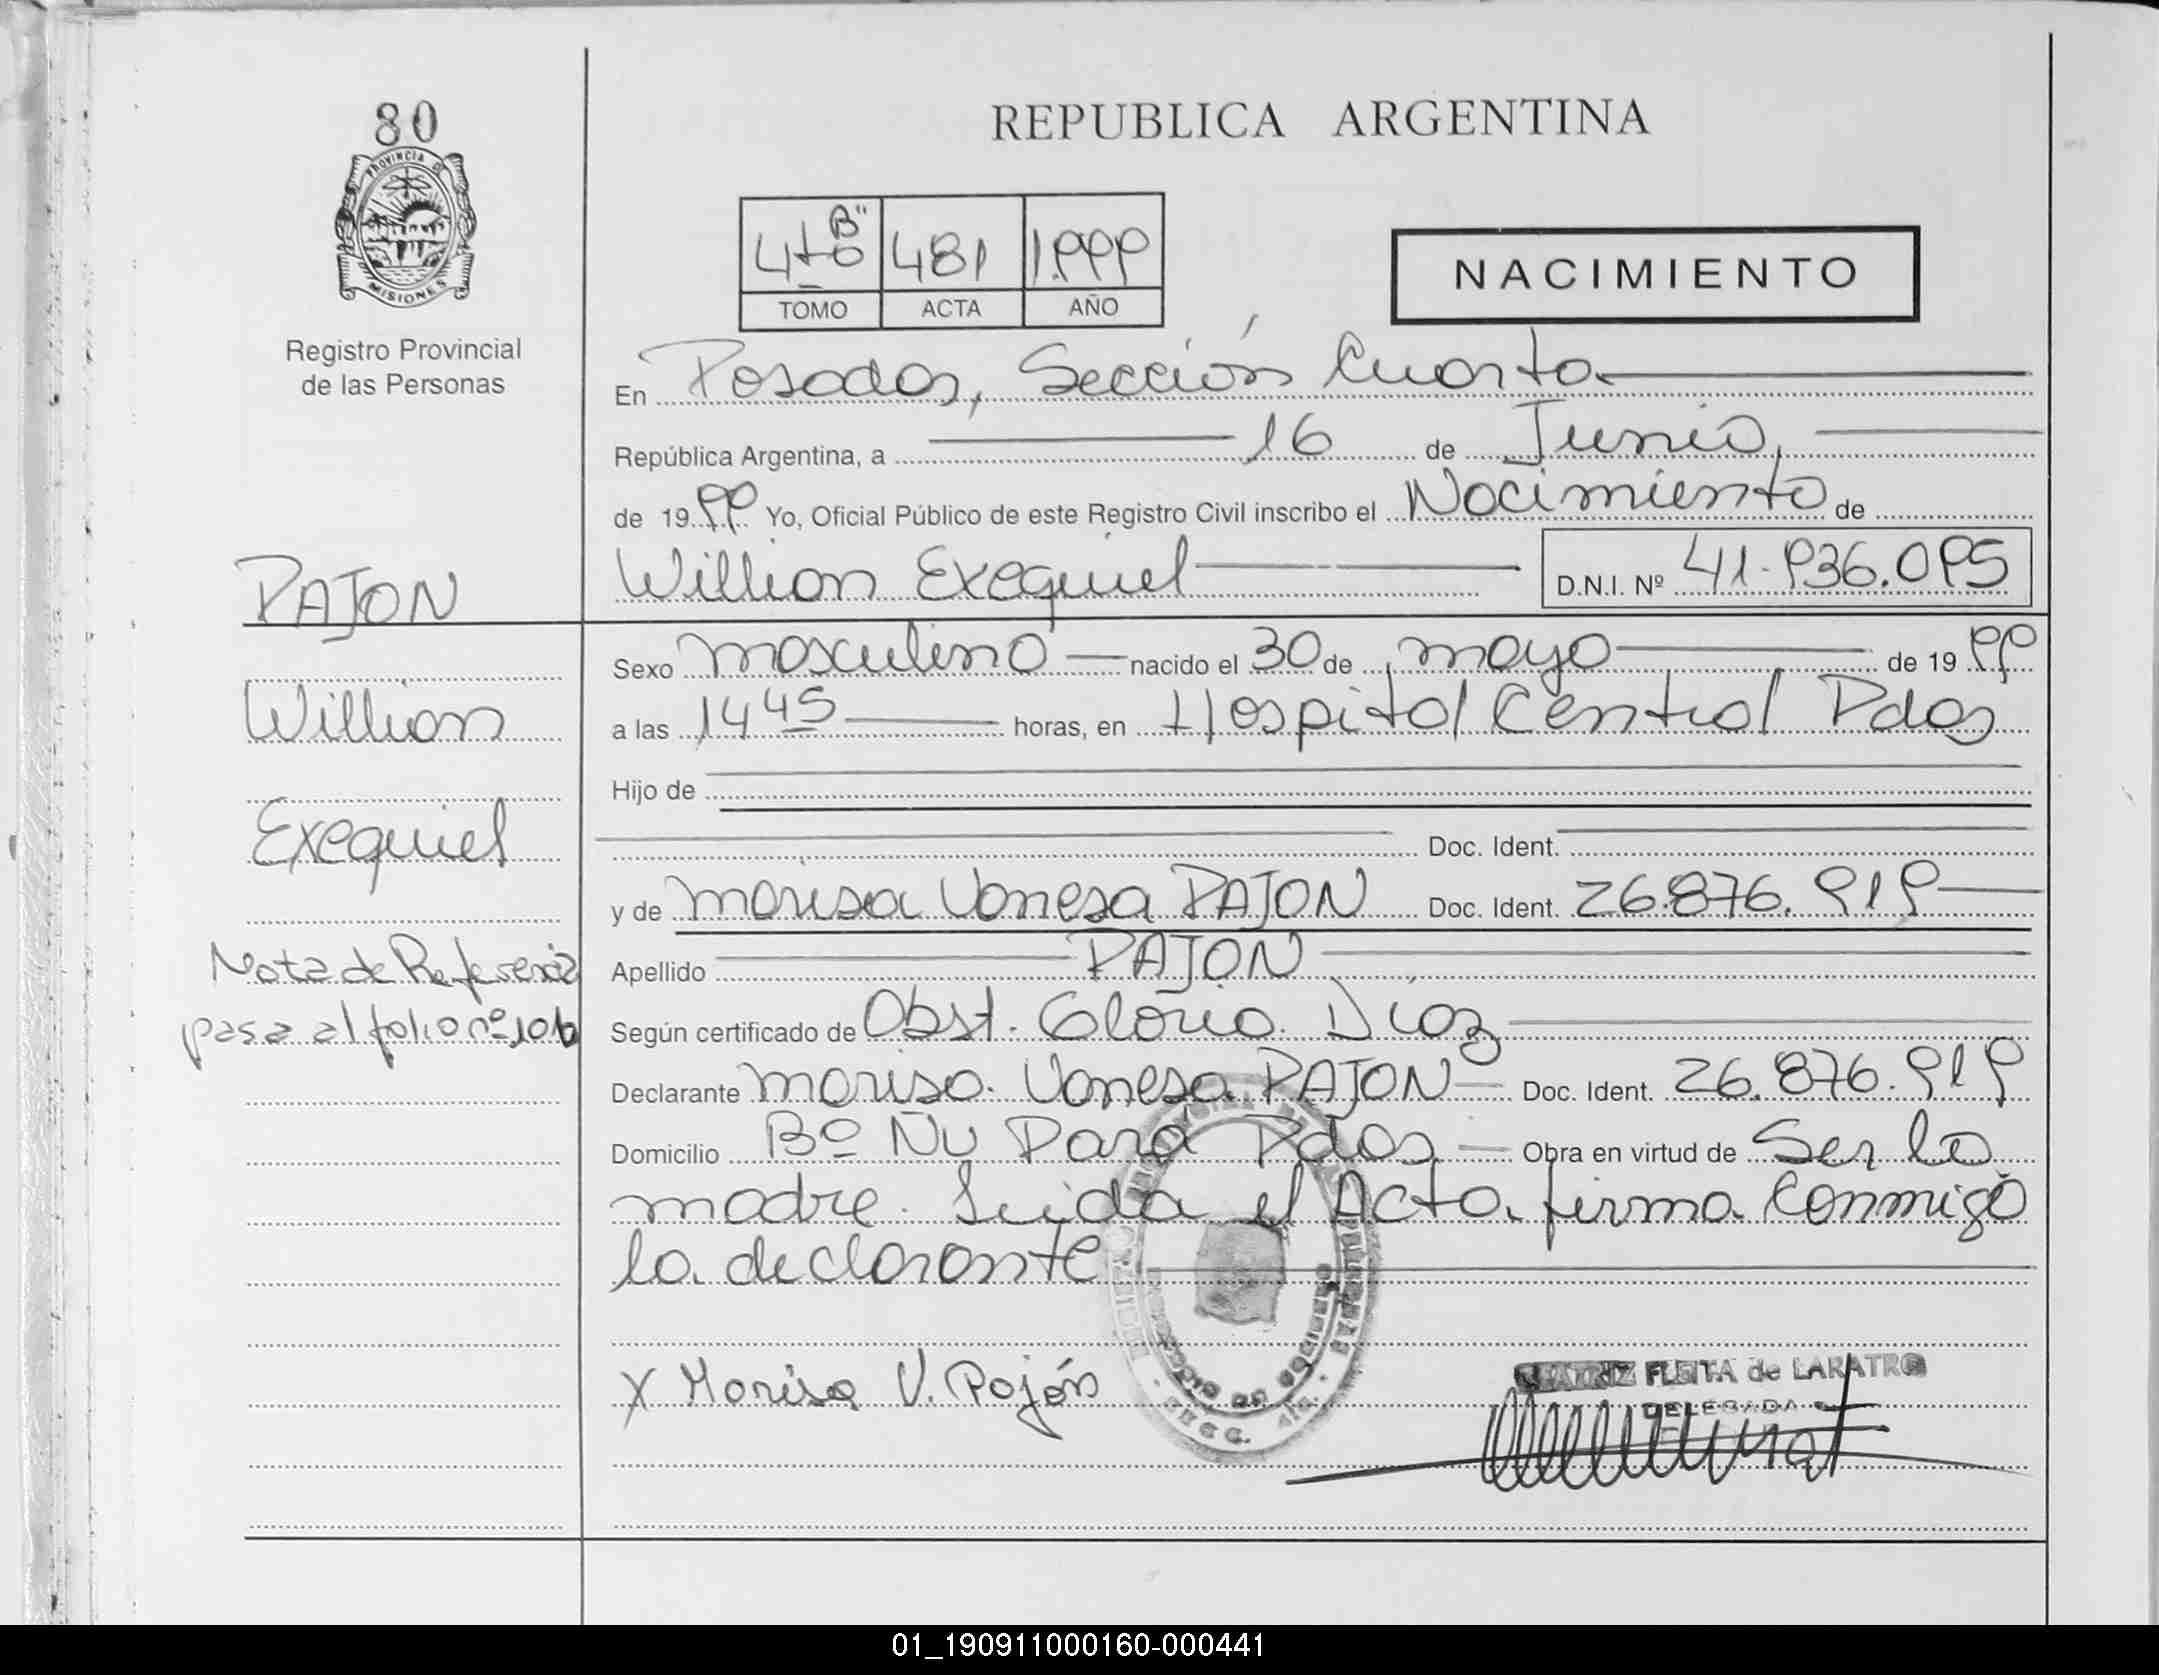 80
PROVINCIA DE
MISIONES
Registro Provincial
de las Personas
REPUBLICA ARGENTINA
4to "B" 481 1.999
TOMO ACTA AÑO
NACIMIENTO
En Posadas, Sección Cuarta
República Argentina, a 16 de Junio,
de 1999 Yo, Oficial Público de este Registro Civil inscribo el Nacimiento de
Willian Exequiel D.N.I. Nº 41.936.095
PAJON
Willian
Exequiel
Nota de Referencia
pasa al folio nº 106
Sexo masculino nacido el 30 de mayo de 1999
a las 14 45 horas, en Hospital Central Pdas
Hijo de
Doc. Ident.
y de Marisa Vanesa PAJON Doc. Ident. 26.876.919
Apellido PAJON
Según certificado de Obst. Gloria Díaz
Declarante Marisa Vanesa PAJON Doc. Ident. 26.876.919
Domicilio Bº Ñu Pará Pdas Obra en virtud de Ser la
madre. Leida el Acta firma conmigo
la declarante
X Marisa V. Pajón
BEATRIZ FLEITA de LARATRO
DELEGADA
01_190911000160-000441